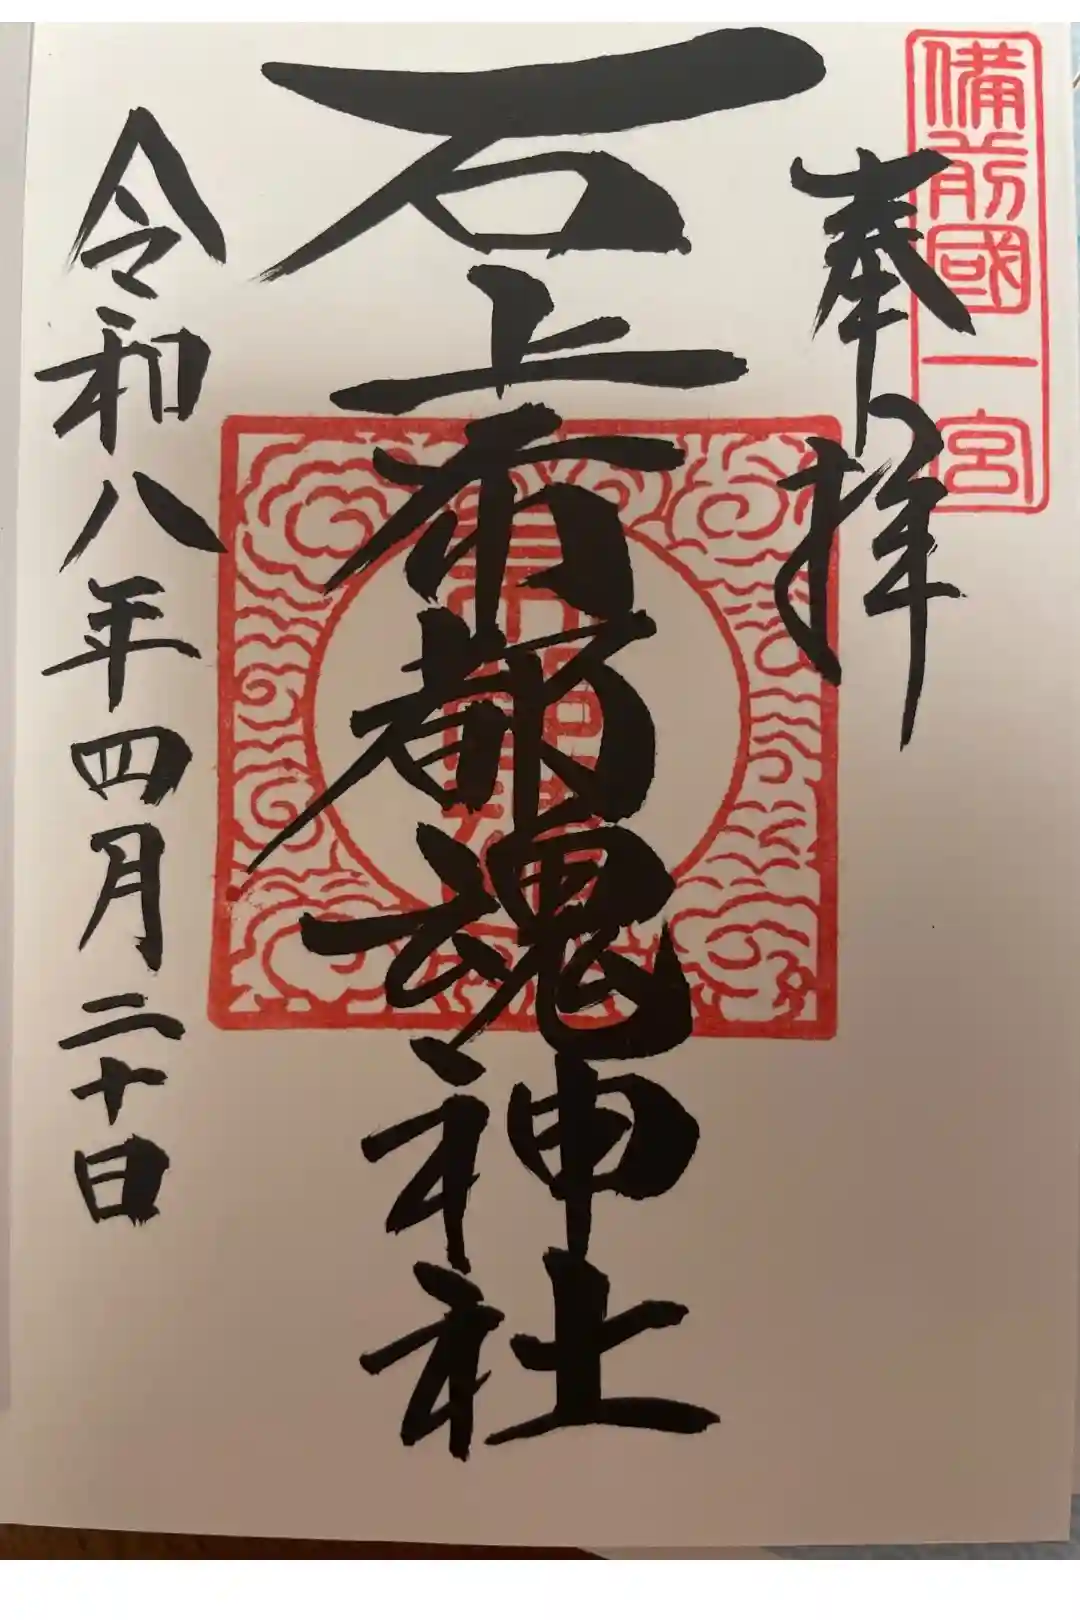 備前國一宮
奉拝
石上布都魂神社
令和八年四月二十日